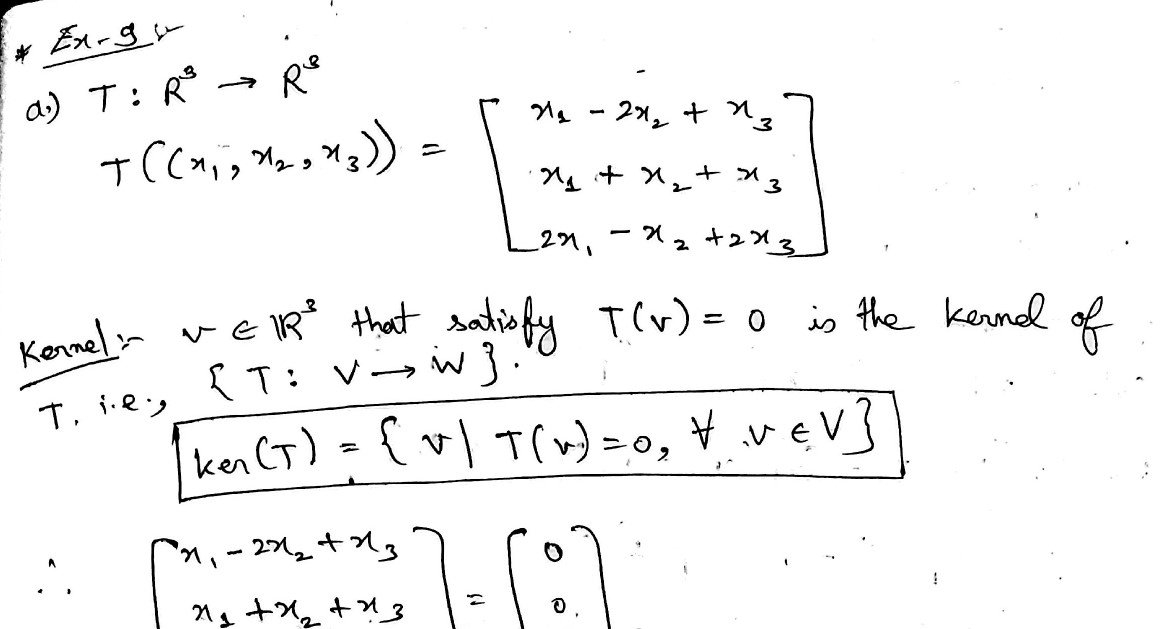 * Ex-9 :-
a.) T : R³ → R³
T((x₁, x₂, x₃)) = [ x₁ - 2x₂ + x₃
x₁ + x₂ + x₃
2x₁ - x₂ + 2x₃ ]
Kernel :- v ∈ ℝ³ that satisfy T(v) = 0 is the kernel of
T. i.e., { T : V → W }.
ker(T) = { v | T(v) = 0, ∀ v ∈ V }
∴ [ x₁ - 2x₂ + x₃ ] = [ 0 ]
x₁ + x₂ + x₃ 0